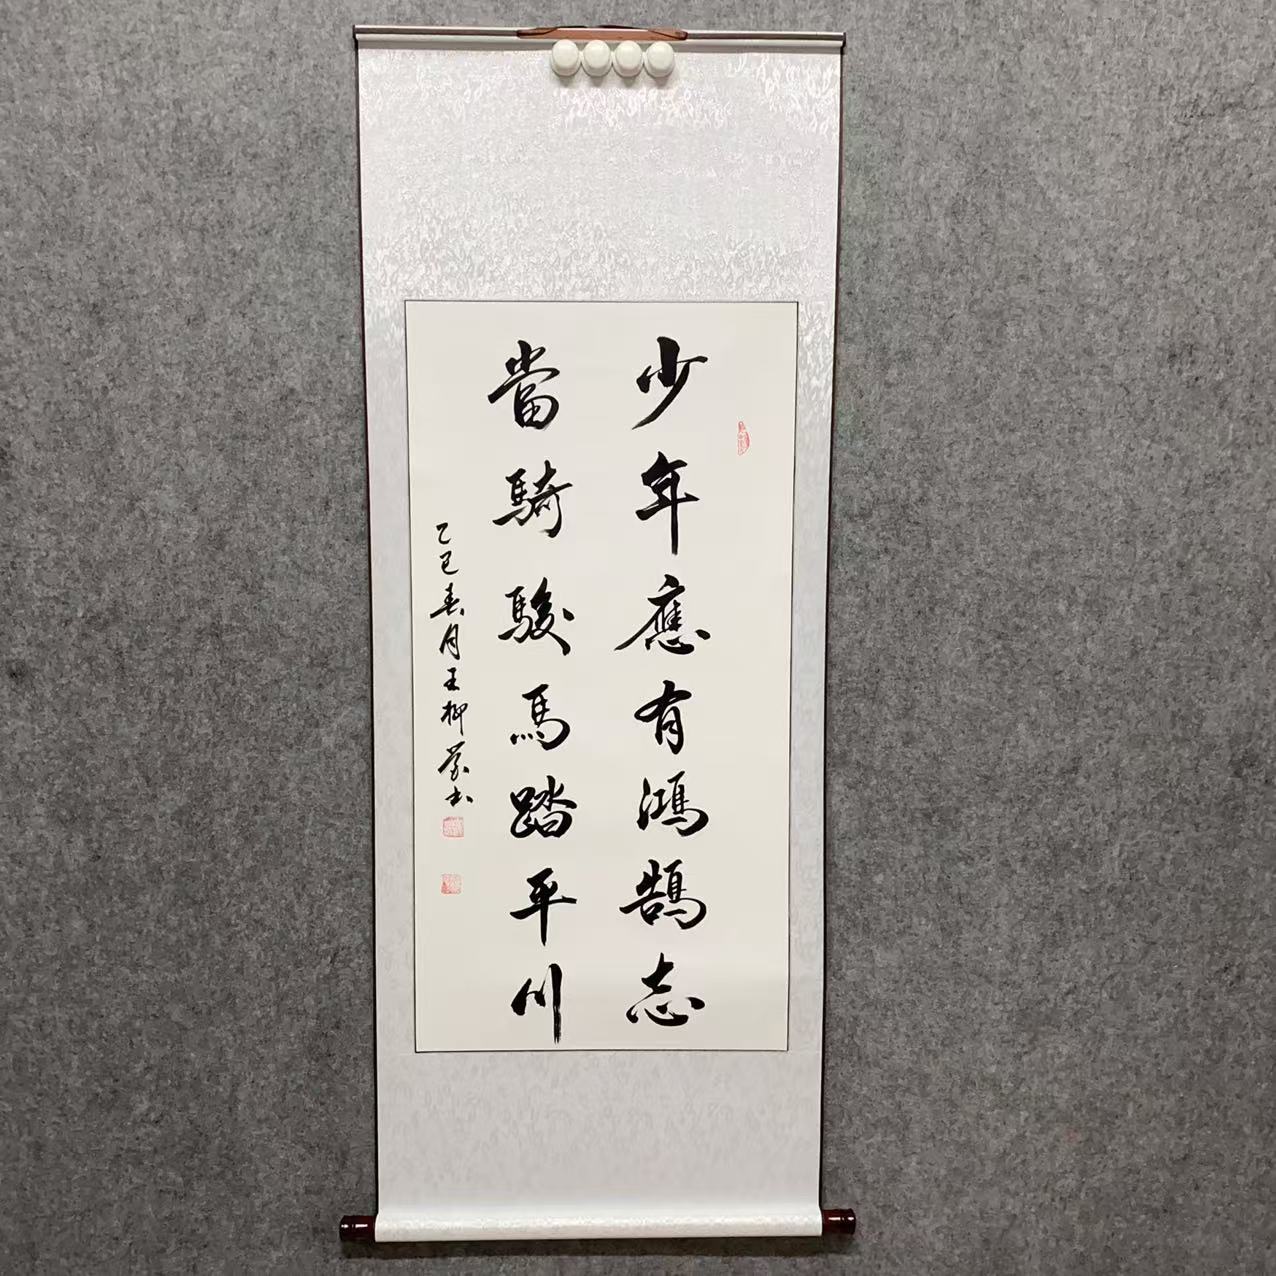 少年應有鴻鵠志
當騎駿馬踏平川
乙巳春月王柳蒙书